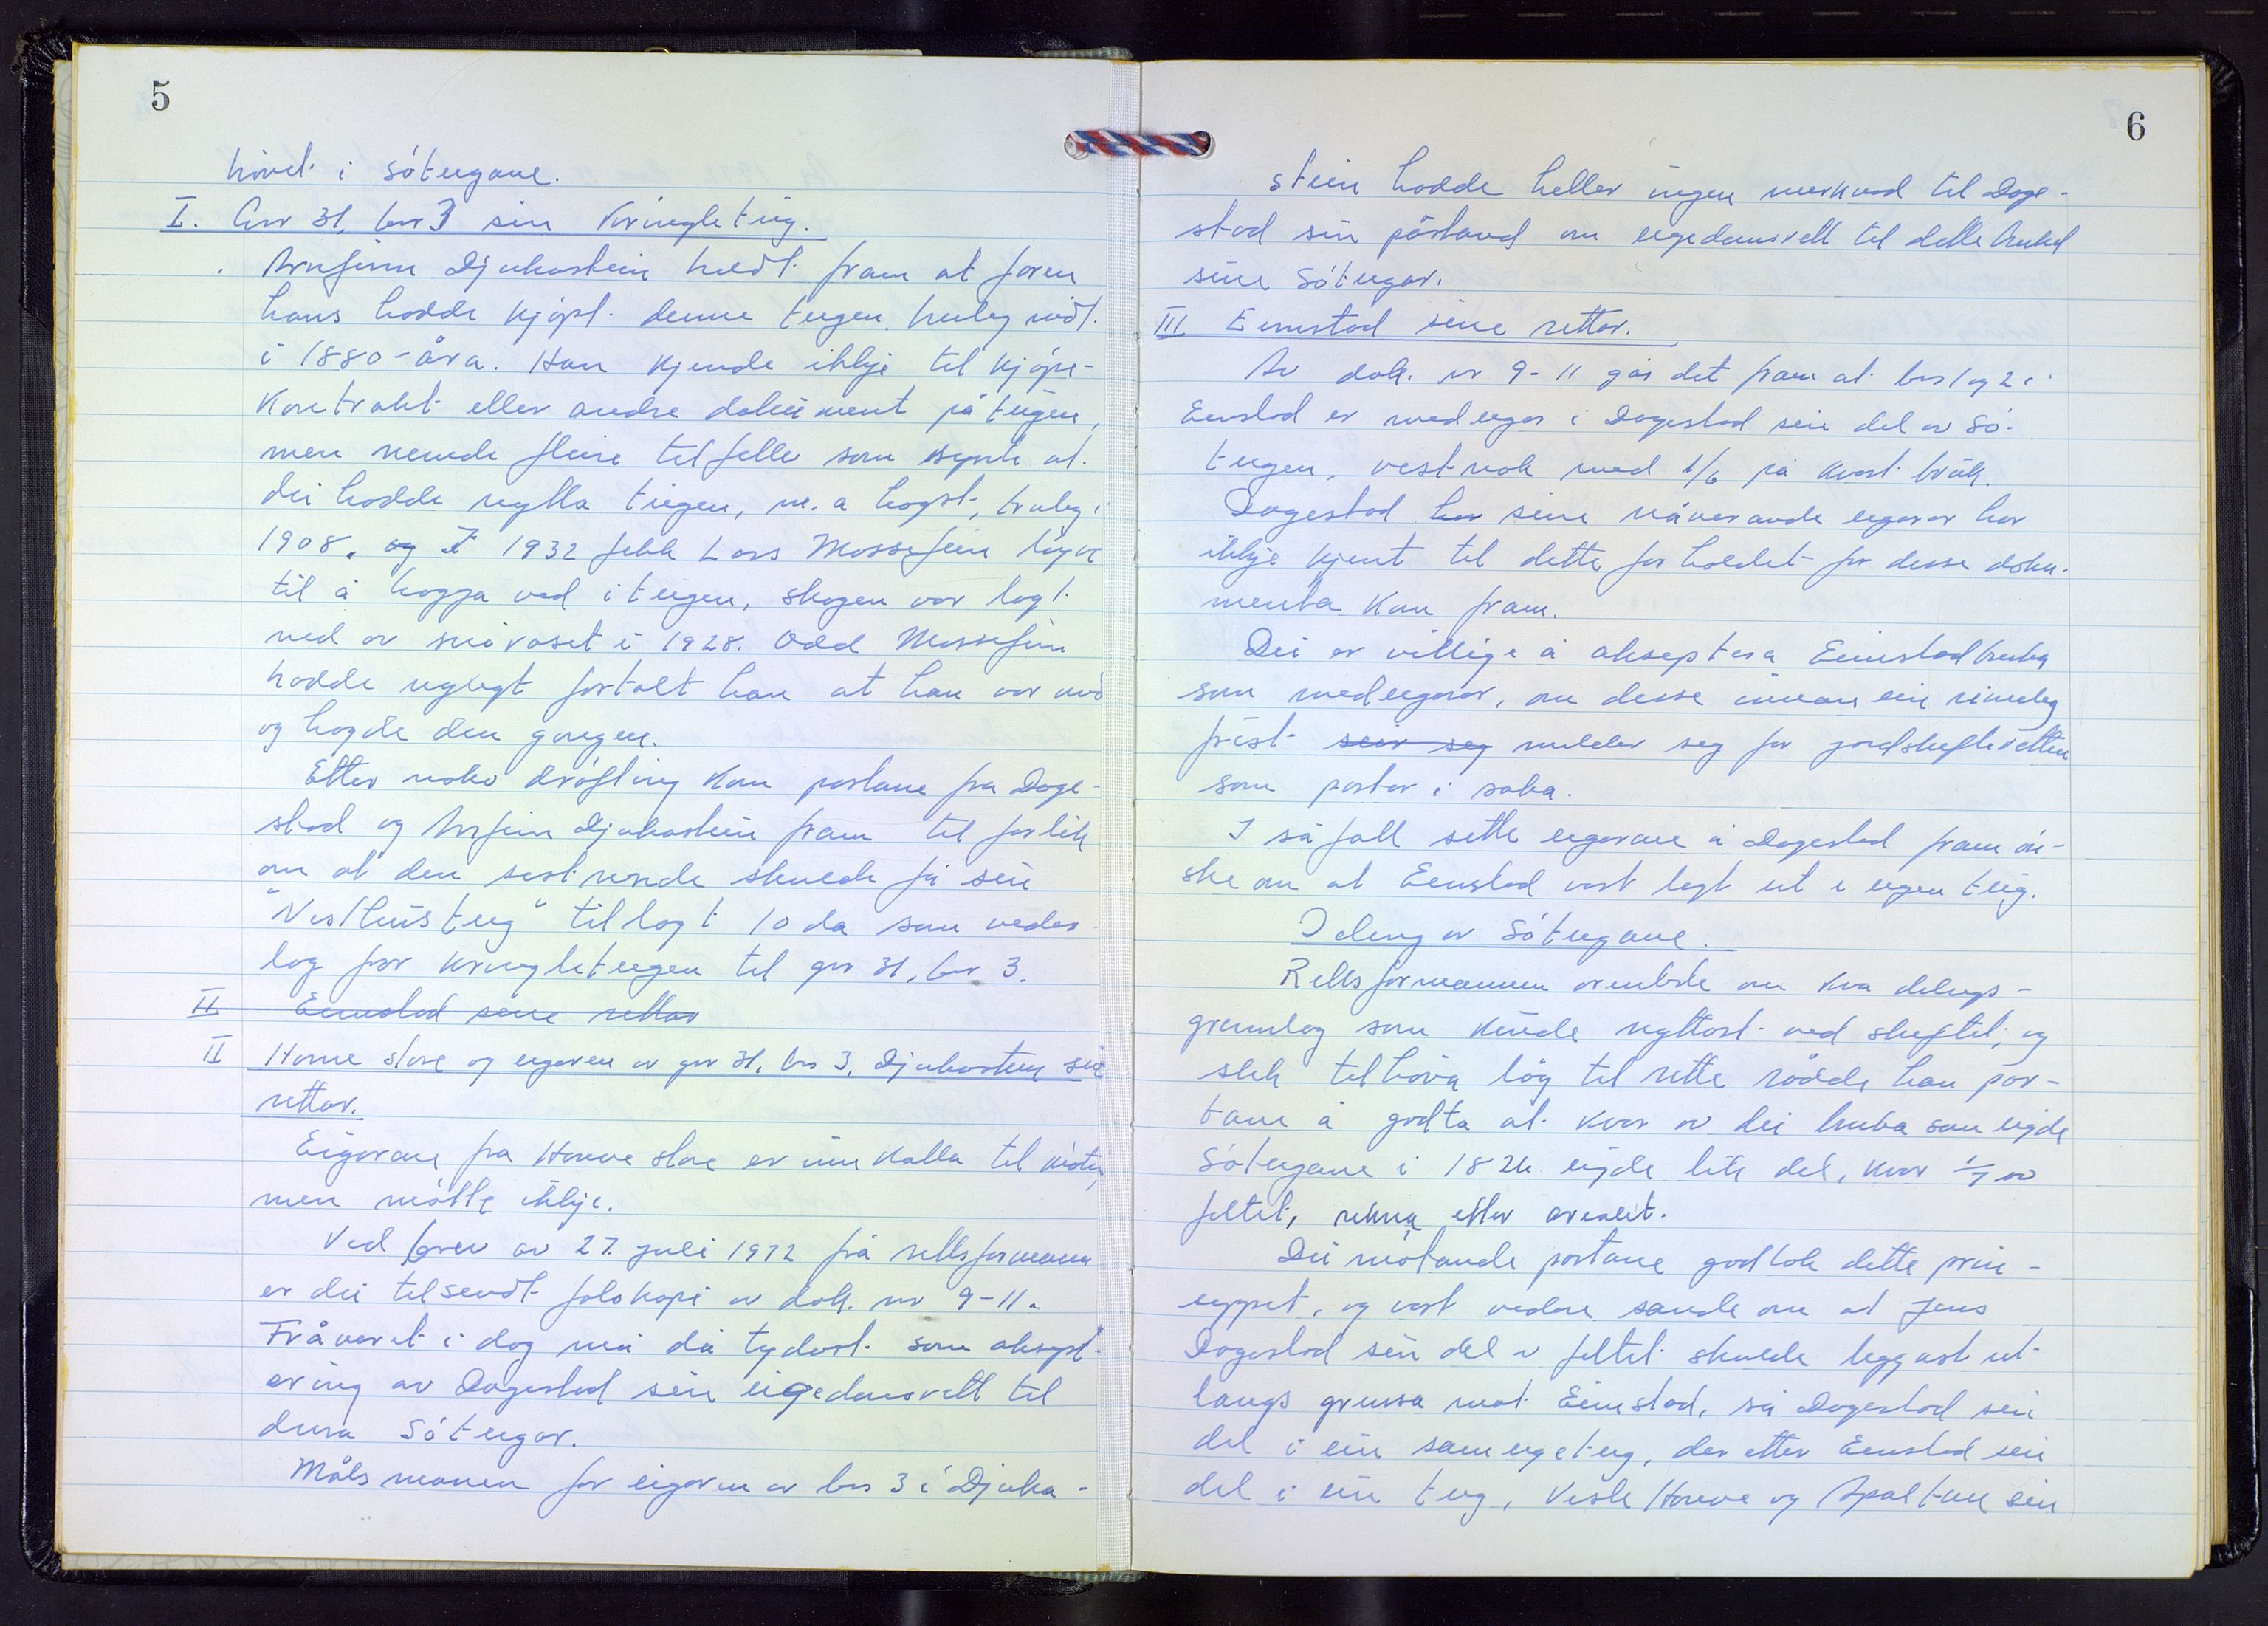 5
hövet i Sóteigane.
I. Gnr 31, bnr 3 sin Kringleteig.
Arnfinn Djukastein heldt fram at faren
hans hadde kjöpt denne teigen truleg midt
i 1880-åra. Han kjende ikkje til kjöpe-
kontrakt eller andre dokument på teigen,
men nemde fleire tilfelle som synte at
dei hadde nytta teigen, m.a. hogst, truleg i
1908. og I 1932 fekk Lars Mossefinn löyve
til å hogga ved i teigen, skogen var lagt
ned av snöraset i 1928. Odd Mossefinn
hadde nylegt fortalt han at han var med
og hogde den gongen.
Etter noko dröfting kom partane fra Dage-
stad og Arnfinn Djukastein fram til forlik
om at den sistnemnde skulde få sin
"Vesthusteig" tillagt 10 da som veder-
lag for Kringleteigen til gnr 31, bnr 3.
II Eimstad sine rettar
II Horne store og eigaren av gnr 31, bnr 3, Djukastein sine
rettar.
Eigarane fra Horve store er innkalla til möte,
men mötte ikkje.
Ved brev av 27. juli 1972 frå rettsformann
er dei tilsendt fotokopi av dok. nr 9-11.
Fråveret i dag må då tydast som aksept-
ering av Dagestad sin eigedomsrett til
dera Sóteigar.
Målsmannen for eigaren av bnr 3 i Djuka-
6
stein hadde heller ingen merknad til Dage-
stad sin påstand om eigedomsrett til dette bruket
sine Sóteigar.
III Eimstad sine rettar.
Av dok. nr 9-11 går det fram at bnr 1 og 2 i
Eimstad er medeigar i Dagestad sin del av Só-
teigen, vestnok med 1/6 på kvart bruk.
Dagestad har sine nåverande eigarar har
ikkje kjent til dette forholdet før desse doku-
menta kom fram.
Dei er villige å akseptera Eimstadbruka
som medeigarar, om desse innan ein rimeleg
frist seier seg melder seg for jordskifteretten
som partar i saka.
I så fall sette eigarane i Dagestad fram ön-
ske om at Eimstad vart lagt ut i eigen teig.
Deling av Sóteigane.
Rettsformannen orienterte om kva delings-
grunnlag som kunde nyttast ved skiftet, og
slik tilhöva låg til rette rådde han par-
tane å godta at kvar av dei bruka som eigde
Sóteigane i 1824 eigde lik del, kvar 1/7 av
feltet, rekna etter arealet.
Dei mötande partane godtok dette prin-
sippet, og vart vidare samde om at Jens
Dagestad sin del i feltet skulde leggast ut
langs grensa mot Eimstad, så Dagestad sin
del i ein sameigeteig, deretter Eimstad sin
del i ein teig, Vesle Horve og Apaltun sin